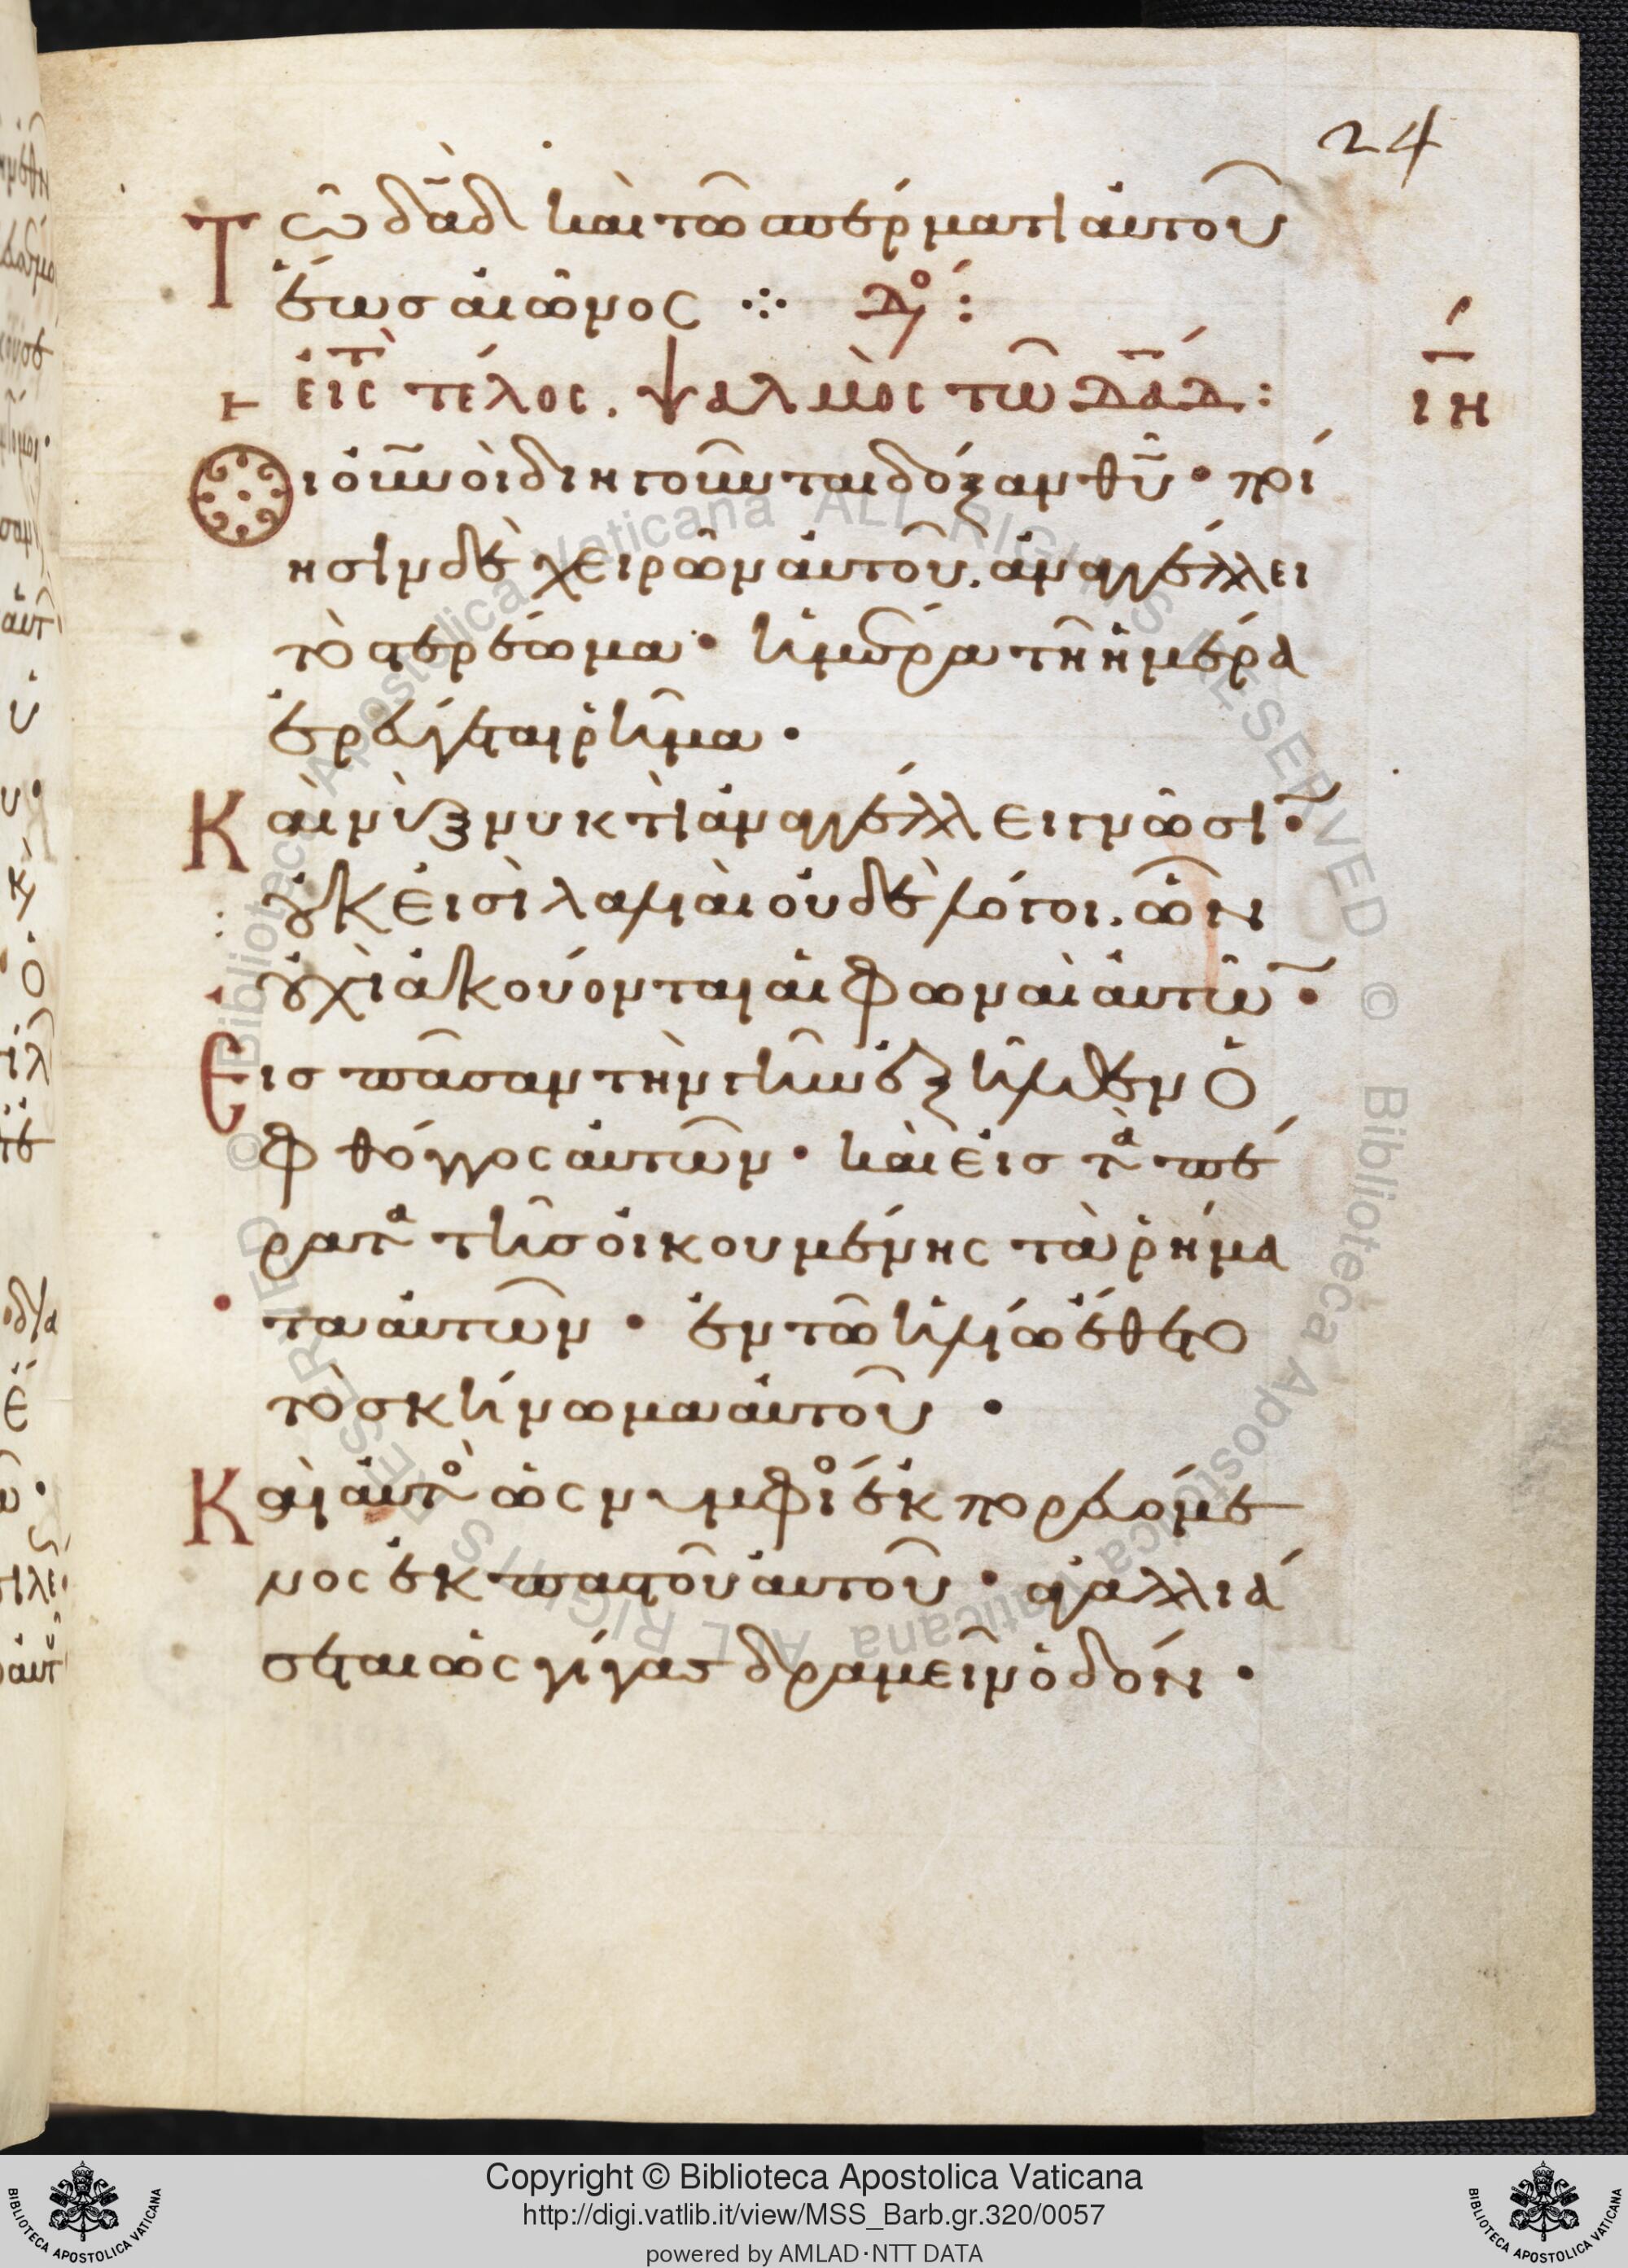 24
Τῶ δᾱδ̀ καὶ τῶ σπέρματι ἀυτοῦ
ἕωσ αἰῶνος ⁘ Δο´ :
εἰς τὸ τέλος. ψαλμὸς τῶ Δᾱδ́ :
ιη
Οἱ οὐνοὶ διηγοῦνται δόξαν θῡ̂ · ποί
ησιν δὲ χειρῶν ἀυτοῦ. ἀναγγέλλει
τὸ στερέωμα · ἡμέρα τῆ ἡμέρα
ἐρεύγεται ῥῆμα ·
Καὶ νὺξ νυκτὶ ἀναγγέλλει γνῶσι ·
οὐκ εἰσὶ λαλιαὶ οὐδὲ λόγοι. ὧν
οὐχὶ ἀκούονται αἱ φωναὶ ἀυτῶ ·
Εἰσ πᾶσαν τὴν γῆν ἐξῆλθεν ὁ
φθόγγος ἀυτῶν · καὶ εἰσ τὰ πέ
ρατα τῆσ οἰκουμένης τὰ ῥήμα
τα ἀυτῶν · ἐν τῶ ἡλίω ἔθετο
τὸ σκήνωμα ἀυτοῦ ·
Καὶ ἀυτὸ ὡς νυμφίο ἐκπορευόμε
νος ἐκ παστοῦ ἀυτοῦ · ἀγαλλιά
σεται ὡς γίγασ δραμεῖν ὁδόν ·
© Biblioteca Apostolica Vaticana ALL RIGHTS RESERVED © Biblioteca Apostolica Vaticana ALL RIGHTS RESERVED
Copyright © Biblioteca Apostolica Vaticana
http://digi.vatlib.it/view/MSS_Barb.gr.320/0057
powered by AMLAD·NTT DATA
BIBLIOTECA APOSTOLICA VATICANA
BIBLIOTECA APOSTOLICA VATICANA